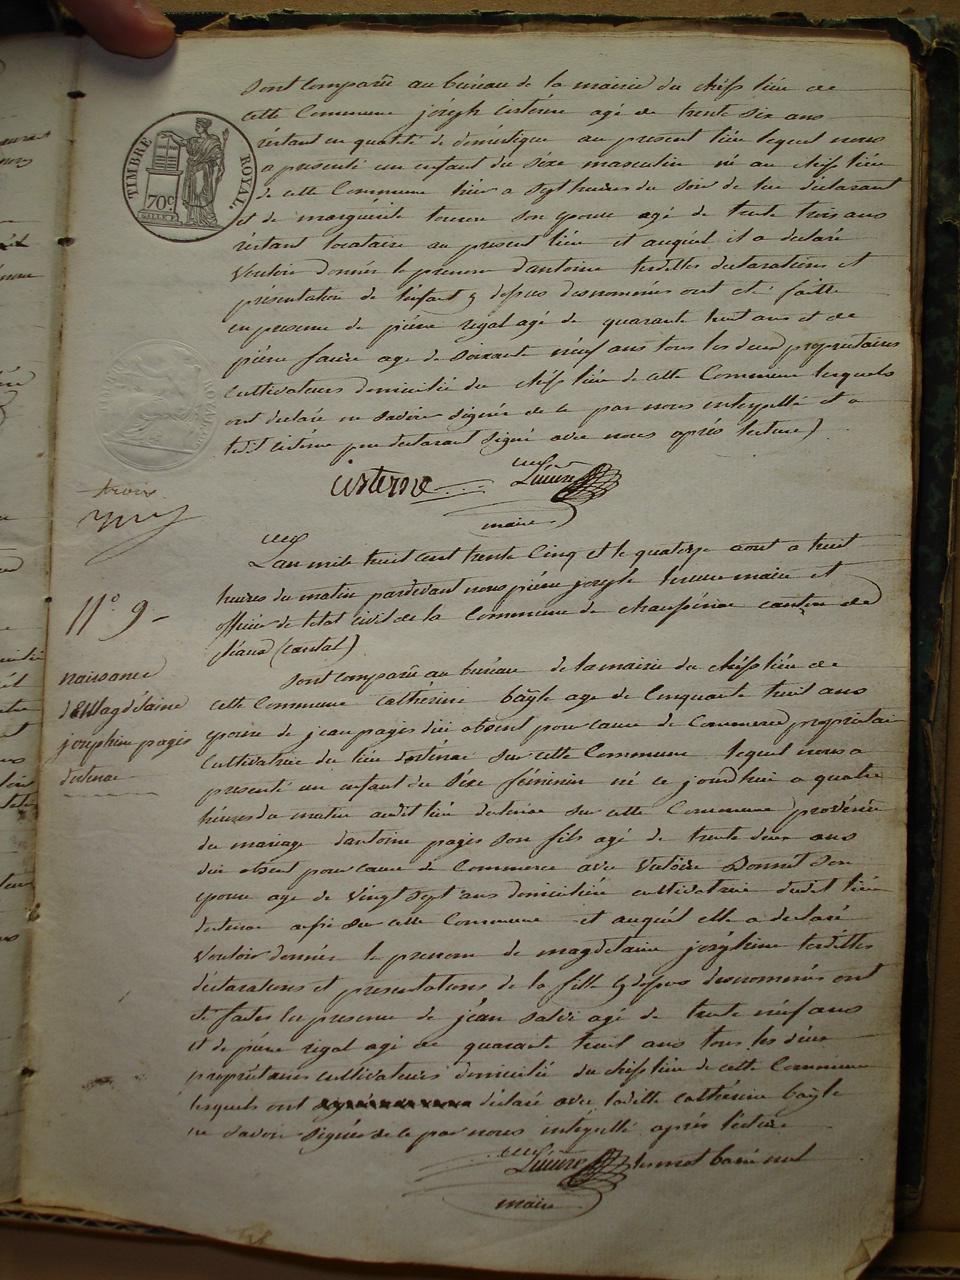 TIMBRE ROYAL
70c
sont comparû au buréau de la mairie du cheff lieu de
cette Commune joséph cisterne agé de trente six ans
réstant en qualité de doméstique au présent lieu lequel nous
a présenté un enfant du séxe masculin né au cheff lieu
de cette Commune hiér a sept heures du soir de lui déclarant
et de marguérite son epouse agé de trente trois ans
réstant locataire au présent lieu et auquél il a declaré
vouloir donnér le prenom d'antoine lesdittes declarations et
présentation de l'enfant cy dessus desnommés ont eté faitte
en presence de piérre rigal agé de quarante huit ans et de
piérre faure age de soixante néuf ans tous les deux propriétaires
cultivateurs domicilié du cheff lieu de cette Commune lesquels
ont declaré ne savoir signér de ce par nous intérpéllé et a
ledit cisterne pere declarant signé avec nous aprés lecture
cisterne
maire
trois
L'an mile huit cent trente Cinq et le quatorze aout a huit
heures du matin pardevant nous piérre joséph maire et
officiér de l'etat civil de la Commune de canton de
(cantal)
N° 9
naissance
de Magdelaine
joséphine pagés
sont comparû au buréau de la mairie du cheff lieu de
cette Commune Cathérine age de Cinquante huit ans
epouse de jean pagés dici absent pour cause de Commerce propriétaire
Cultivatrice du lieu sur cette Commune lequel nous a
presenté un enfant du séxe féminin né ce jourd'hui a quatre
héures du matin audit lieu sur cette Commune provénue
du mariage d'antoine pagés son fils agé de trente deux ans
dici absent pour cause de Commerce avec son
epouse age de vingt sept ans domiciliée cultivatrice dudit lieu
sur cette Commune et auquél elle a declaré
vouloir donnér le prenom de magdelaine joséphine lesdittes
déclarations et presentations de la fille cy dessus desnommés ont
eté faites en presence de jéan agé de trente néuf ans
et de piérre rigal agé de quarante huit ans tous les déux
propriétaires cultivateurs domicilié du cheff lieu de cette Commune
lesquels ont déclaré avec laditte cathérine
ne savoir signér de ce par nous intérpéllé aprés lécture
le mot barré nul
maire